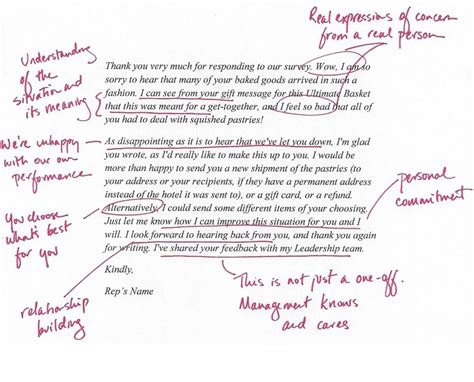 Real expressions of concern
from a real person
Understanding
of the
situation and
its meaning
Thank you very much for responding to our survey. Wow, I am so
sorry to hear that many of your baked goods arrived in such a
fashion. I can see from your gift message for this Ultimate Basket
that this was meant for a get-together, and I feel so bad that all of
you had to deal with squished pastries!
We're unhappy
with our own
performance
As disappointing as it is to hear that we've let you down, I'm glad
you wrote, as I'd really like to make this up to you. I would be
more than happy to send you a new shipment of the pastries (to
your address or your recipients, if they have a permanent address
instead of the hotel it was sent to), or a gift card, or a refund.
Alternatively, I could send some different items of your choosing.
Just let me know how I can improve this situation for you and I
will. I look forward to hearing back from you, and thank you again
for writing. I've shared your feedback with my Leadership team.
personal
commitment
You choose
what's best
for you
Kindly,
Rep's Name
relationship
building
This is not just a one-off.
Management knows
and cares